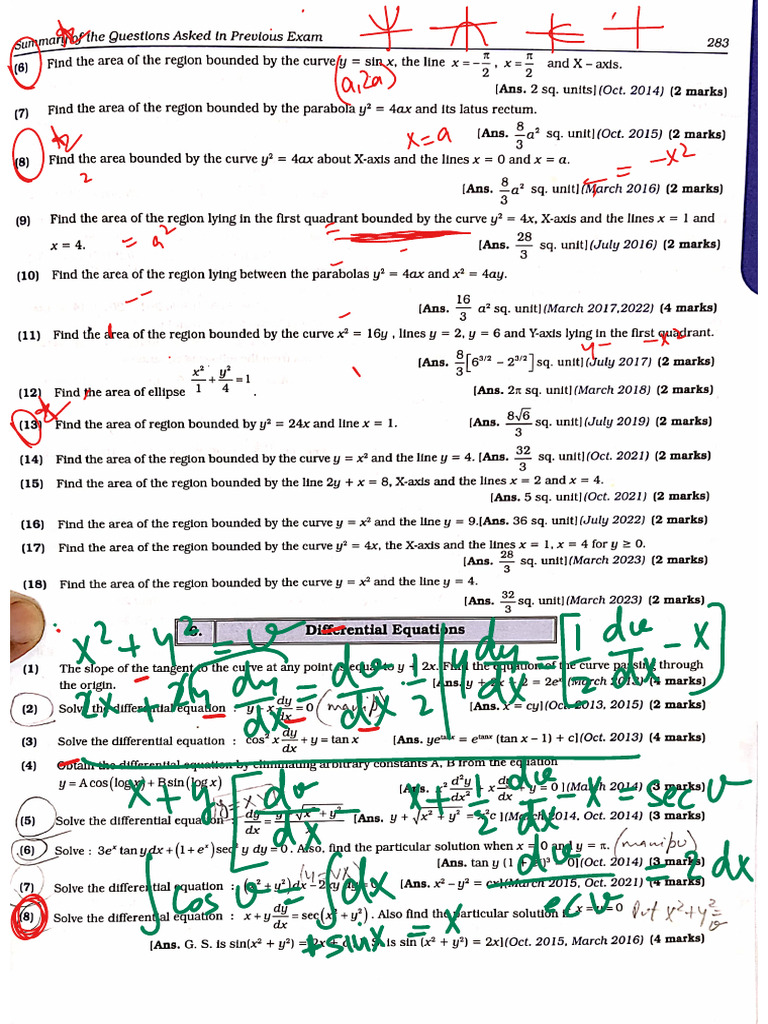 Summary of the Questions Asked in Previous Exam 283
(6) Find the area of the region bounded by the curve y = sin x, the line x = −π/2, x = π/2 and X – axis.
(a, 2a)
[Ans. 2 sq. units] (Oct. 2014) (2 marks)
(7) Find the area of the region bounded by the parabola y² = 4ax and its latus rectum.
x = a
[Ans. 8/3 a² sq. unit] (Oct. 2015) (2 marks)
(8) Find the area bounded by the curve y² = 4ax about X-axis and the lines x = 0 and x = a.
= −x²
2
[Ans. 8/3 a² sq. unit] (March 2016) (2 marks)
(9) Find the area of the region lying in the first quadrant bounded by the curve y² = 4x, X-axis and the lines x = 1 and
x = 4. = a² [Ans. 28/3 sq. unit] (July 2016) (2 marks)
(10) Find the area of the region lying between the parabolas y² = 4ax and x² = 4ay.
[Ans. 16/3 a² sq. unit] (March 2017,2022) (4 marks)
(11) Find the area of the region bounded by the curve x² = 16y , lines y = 2, y = 6 and Y-axis lying in the first quadrant.
y− −x²
[Ans. 8/3 [6^3/2 − 2^3/2] sq. unit] (July 2017) (2 marks)
(12) Find the area of ellipse x²/1 + y²/4 = 1 . [Ans. 2π sq. unit] (March 2018) (2 marks)
(13) Find the area of region bounded by y² = 24x and line x = 1. [Ans. 8√6/3 sq. unit] (July 2019) (2 marks)
(14) Find the area of the region bounded by the curve y = x² and the line y = 4. [Ans. 32/3 sq. unit] (Oct. 2021) (2 marks)
(15) Find the area of the region bounded by the line 2y + x = 8, X-axis and the lines x = 2 and x = 4.
[Ans. 5 sq. unit] (Oct. 2021) (2 marks)
(16) Find the area of the region bounded by the curve y = x² and the line y = 9. [Ans. 36 sq. unit] (July 2022) (2 marks)
(17) Find the area of the region bounded by the curve y² = 4x, the X-axis and the lines x = 1, x = 4 for y ≥ 0.
[Ans. 28/3 sq. unit] (March 2023) (2 marks)
(18) Find the area of the region bounded by the curve y = x² and the line y = 4.
[Ans. 32/3 sq. unit] (March 2023) (2 marks)
Differential Equations
x² + y² = v
(1) The slope of the tangent to the curve at any point is equal to y + 2x. Find the equation of the curve passing through
the origin. [Ans. y + 2x + 2 = 2eˣ] (March 2013) (4 marks)
2x + 2y dy/dx = dv/dx · 1/2 | y dy/dx = [1/2 dv/dx − x]
(2) Solve the differential equation : y − x dy/dx = 0 [Ans. x = cy] (Oct. 2013, 2015) (2 marks)
(3) Solve the differential equation : cos² x dy/dx + y = tan x [Ans. ye^tanx = e^tanx (tan x − 1) + c] (Oct. 2013) (4 marks)
(4) Obtain the differential equation by eliminating arbitrary constants A, B from the equation
y = A cos (log x) + B sin (log x) [Ans. x² d²y/dx² + x dy/dx + y = 0] (March 2014) (3 marks)
x + y [dv/dx x + 1/2 dv/dx − x = sec v
(5) Solve the differential equation : dy/dx = y + √x² + y² [Ans. y + √x² + y² = c] (March 2014, Oct. 2014) (3 marks)
(6) Solve : 3eˣ tan y dx + (1 + eˣ) sec² y dy = 0. Also, find the particular solution when x = 0 and y = π. (manipu)
[Ans. tan y (1 + eˣ)³ = 0] (Oct. 2014) (3 marks)
∫ cos v = ∫ dx dv/sec v = 2 dx
(7) Solve the differential equation : (x² + y²) dx − 2xy dy = 0 [Ans. x² − y² = cx] (March 2015, Oct. 2021) (4 marks)
(8) Solve the differential equation : x + y dy/dx = sec(x² + y²). Also find the particular solution if x = y = 0 Put x² + y² = v
+ sin x = x
[Ans. G. S. is sin(x² + y²) = 2x + c, P. S. is sin (x² + y²) = 2x] (Oct. 2015, March 2016) (4 marks)